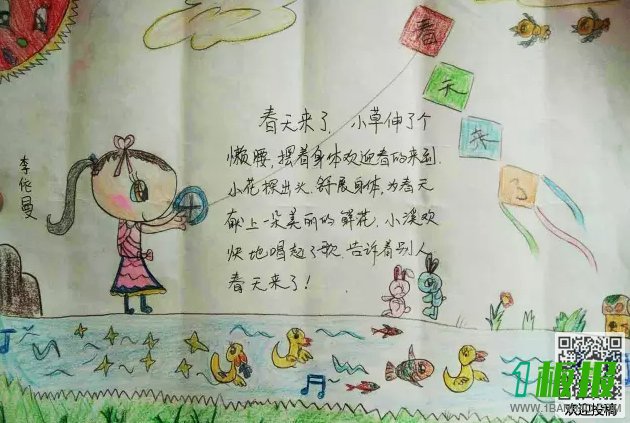 春
天
来
了
春天来了，小草伸了个
懒腰，摆着身体欢迎春的来到.
小花探出头，舒展身体，为春天
献上一朵美丽的鲜花，小溪欢
快地唱起了歌，告诉着别人
春天来了！
1板报
欢迎投稿